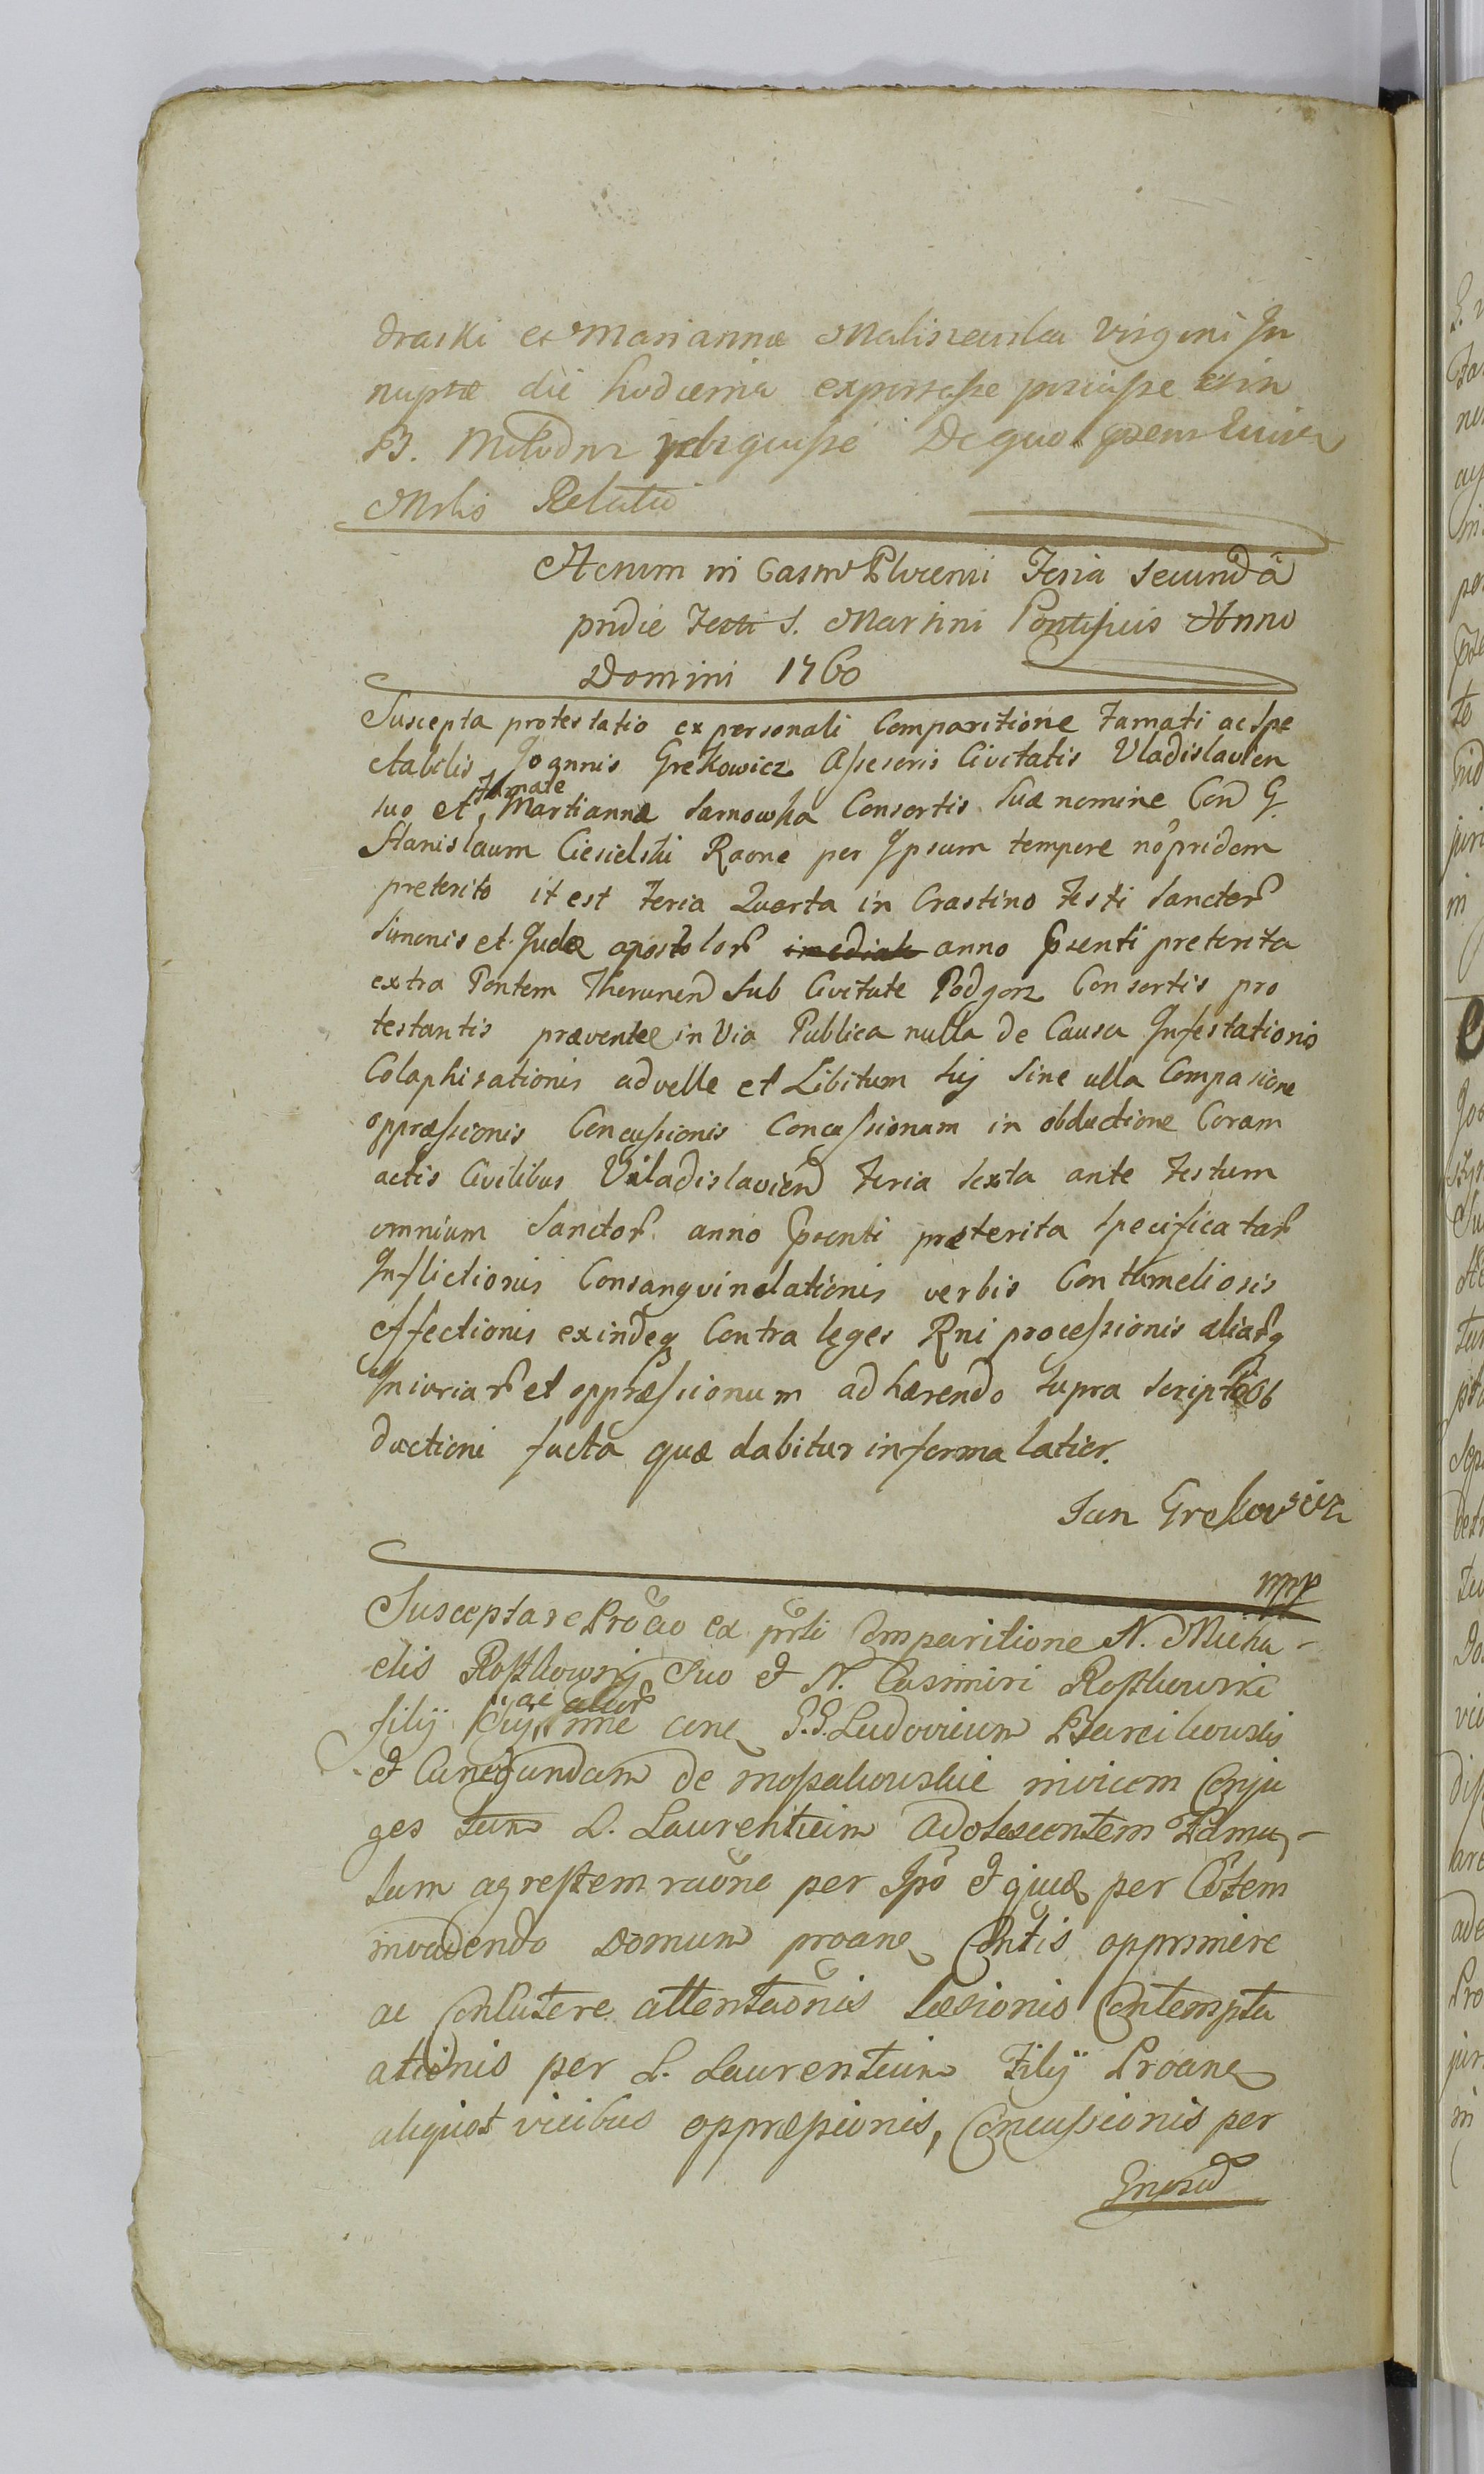 draski et Mariannæ Maliszewska Virgini In
nuptæ die hodierna exportasse posuisse et in
B. Mlodn reliquisse De quo
Mrlis Relatio
Actum in Castro Plveni Feria Secunda
pridie Festi S. Martini Pontificis Anno
Domini 1760
Suscepta protestatio ex personali Comparitione Famati ac Spe
ctabilis Joannis Grekowicz Assessoris Civitatis Vladislavien
Famatæ
suo et Martiannæ Sarnowska Consortis Suæ nomine Con G.
Stanislaum Ciesielski Raone per Ipsum tempore no pridem
preterito it est Feria Quarta in Crastino Festi Sanctor
Simonis et Judæ apostolor imediate anno psenti preterita
extra Pontem Thorunen Sub Civitate Podgorz Consortis pro
testantis præventæ in Via Publica nulla de Causa Infestationis
Colaphisationis ad velle et Libitum sui Sine ulla Compasione
oppræssionis Concussionis Concussionum in obductione Coram
actis Civilibus Vladislavien Feria Sexta ante Festum
omnium Sanctor anno psenti præterita specificatar
Inflictionis Consangvinolationis verbis Contumeliosis
Affectionis exindeq Contra leges Rni processionis aliarq
Iniuriar et oppræssionum adhærendo supra scripto Ob
ductioni facta quæ dabitur in forma latior.
Jan Grekowicz
mpp
Suscepta re Proao ex prli Comparitione N. Micha-
elis Rostkowski Suo et N. Casimiri Rostkowski
ac alior
filij Sui nne con G.G. Ludovicum Marcikowskis
et Cunegundam de Mossakowskie invicem Conju
ges tum L. Laurentium Adolescentem Famu-
lum agrestem raone per Ipo et quid per Eotem
invadendo Domum proane Contis opprimere
ac Conlutere attentaonis læsionis Contempta
ationis per L. Laurentium Filij Proane
aliquot vicibus oppræssionis, Concussionis per